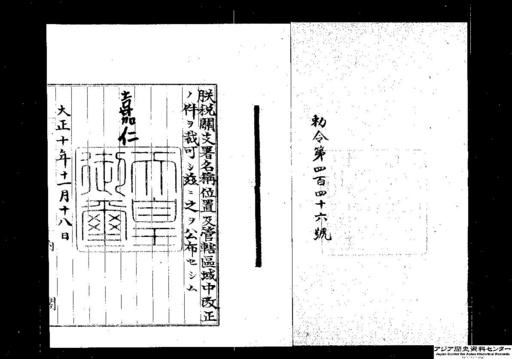 勅令第四百四十六號
朕税關支署名稱位置及管轄區域中改正
ノ件ヲ裁可シ茲ニ之ヲ公布セシム
嘉仁
天皇御璽
大正十年十一月十八日
内閣
アジア歴史資料センター
Japan Center for Asian Historical Records